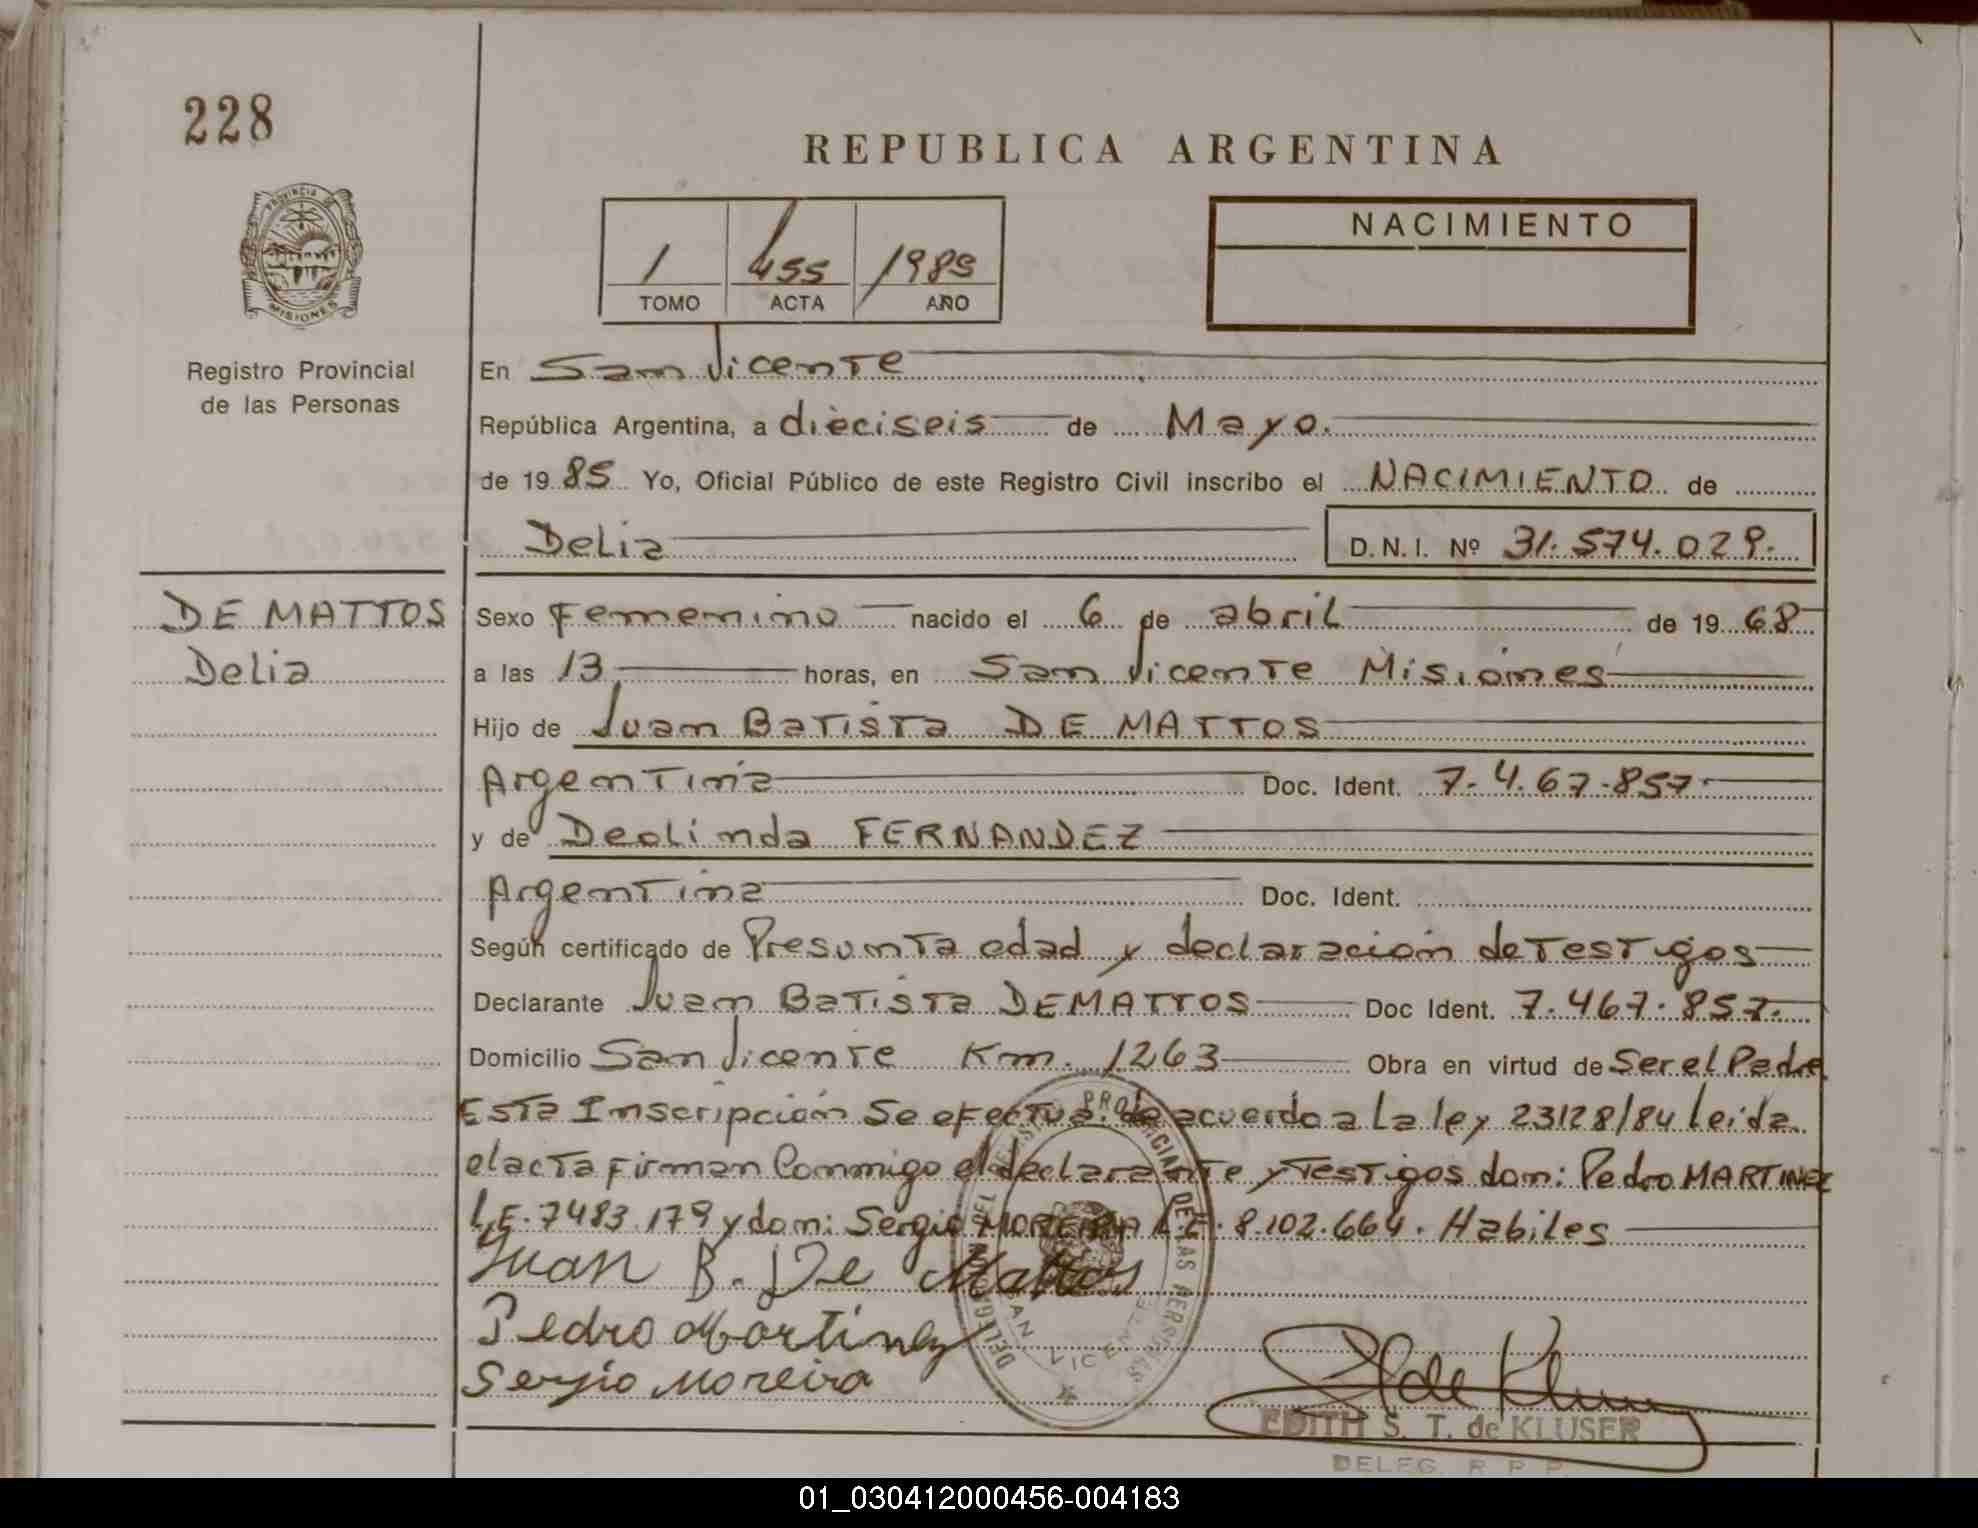 228
REPUBLICA ARGENTINA
PROVINCIA DE
MISIONES
Registro Provincial
de las Personas
1 455 1985
TOMO ACTA AÑO
NACIMIENTO
En San Vicente
República Argentina, a dieciseis de Mayo.
de 1985 Yo, Oficial Público de este Registro Civil inscribo el NACIMIENTO de
Delia D.N.I. Nº 31.574.029.
DE MATTOS
Delia
Sexo Femenino nacido el 6 de abril de 1968
a las 13 horas, en San Vicente Misiones
Hijo de Juan Batista DE MATTOS
Argentina Doc. Ident. 7.4.67.857.
y de Deolinda FERNANDEZ
Argentina Doc. Ident.
Según certificado de Presunta edad y declaración de Testigos
Declarante Juan Batista DEMATTOS Doc Ident. 7.467.857.
Domicilio San Vicente Km. 1263 Obra en virtud de Ser el Padre
Esta Inscripción Se efectua de acuerdo a La ley 23128/84 Leida
el acta Firman Conmigo el declarante y Testigos don: Pedro MARTINEZ
L.E. 7483.179 y don: Sergio MOREIRA L.E. 8.102.664. Habiles
Juan B. De Mattos
Pedro Martinez
Sergio Moreira
DELEGACION DEL REGISTRO PROVINCIAL DE LAS PERSONAS
SAN VICENTE
EDITH S. T. de KLUSER
DELEG. R. P. P.
01_030412000456-004183